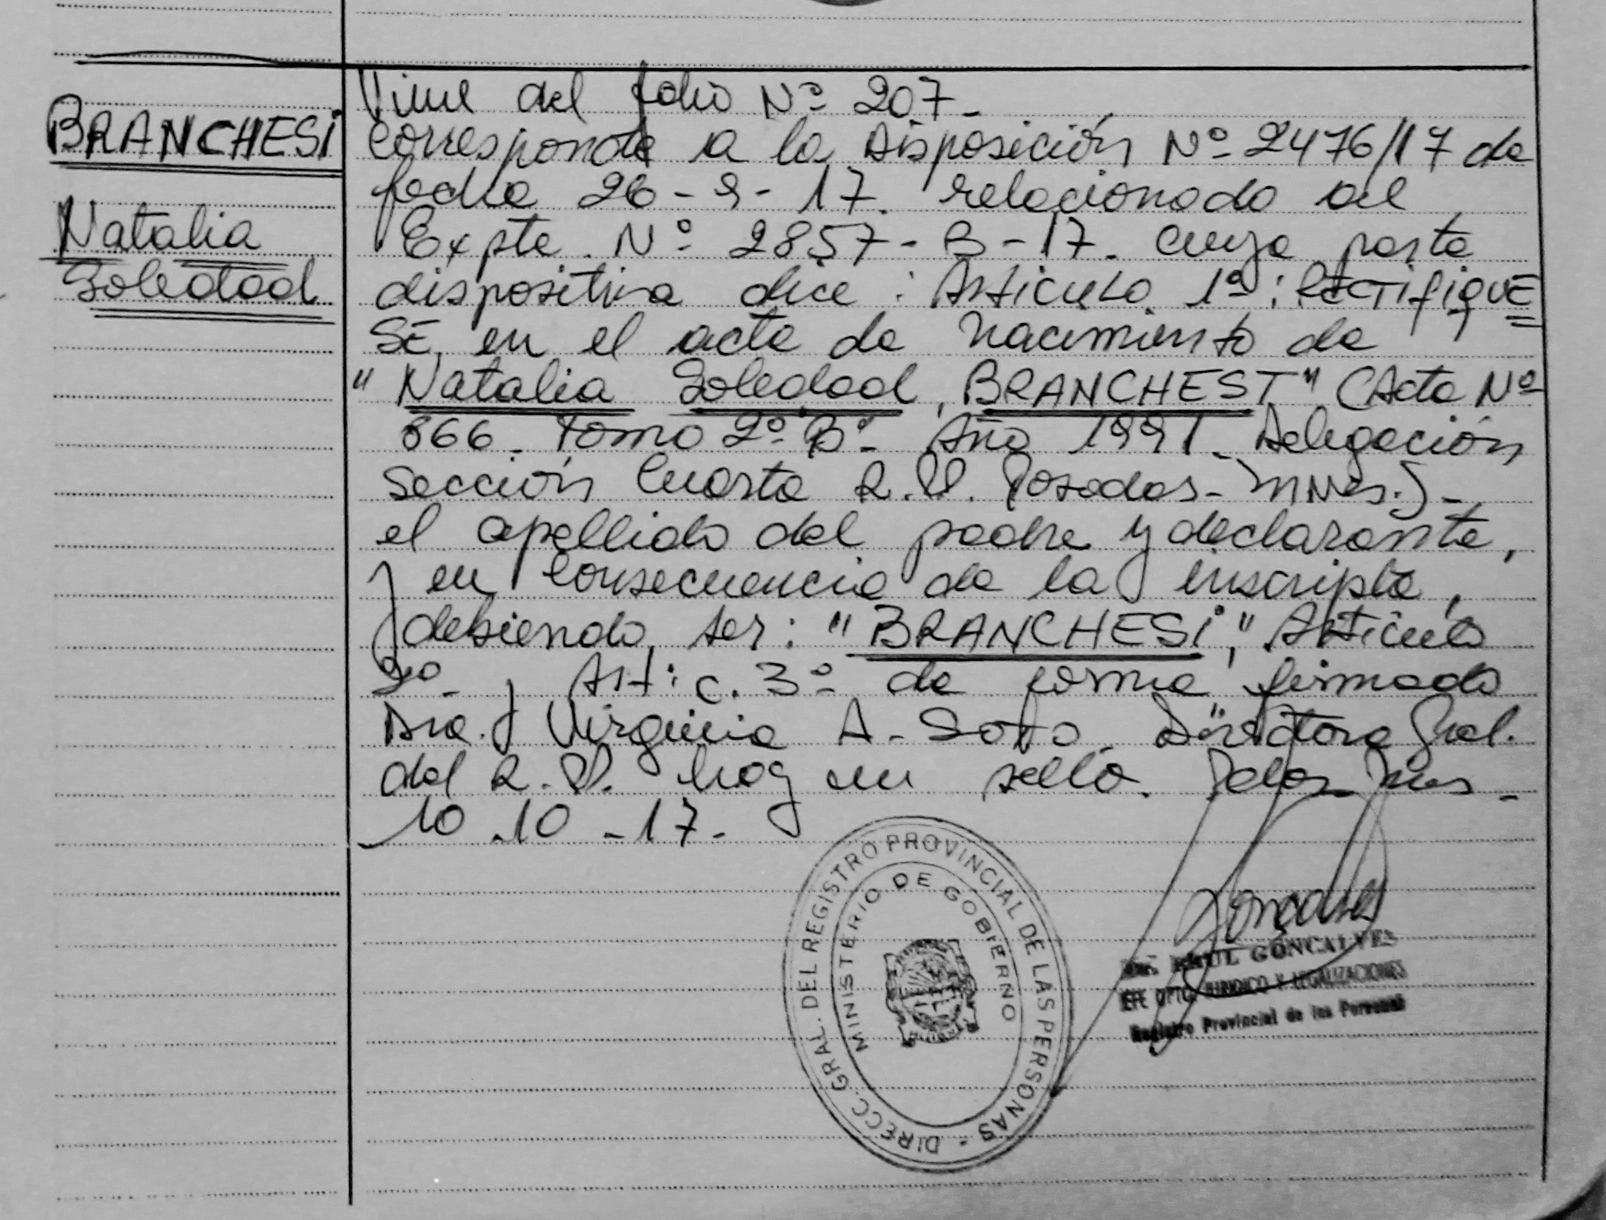 BRANCHESI
Natalia
Soledad
Viene del folio Nº 207-
Corresponde a la Disposición Nº 2476/17 de
fecha 26-9-17. relacionado al
Expte. Nº 2857-B-17. cuya parte
dispositiva dice: Artículo 1º: RECTIFIQUE
SE, en el acta de nacimiento de
"Natalia Soledad, BRANCHEST" (Acta Nº
866- Tomo 2º "B"- Año 1991- Delegación
Sección Cuarta R.P. Posadas-Mnes.)-
el apellido del padre y declarante,
y en consecuencia de la inscripta,
debiendo ser: "BRANCHESI", Artículo
2º- y Artic. 3º de forma firmado
Dra. Virginia A. Soto. Directora Gral.
del R.P. hay un sello. Pdas. Mnes-
10-10-17-
DIRECC. GRAL. DEL REGISTRO PROVINCIAL DE LAS PERSONAS
MINISTERIO DE GOBIERNO
RAUL GONCALVES
DPTO. JURIDICO Y LEGALIZACIONES
Registro Provincial de las Personas